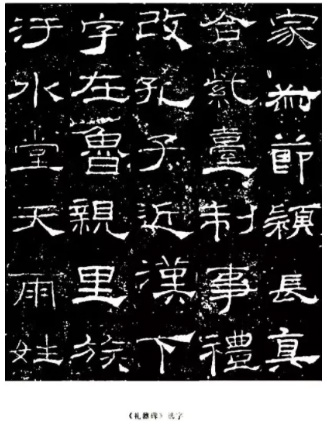 家節穎長真
合紫臺制事禮
改孔子近漢下
字在魯親里族
汙水堂天雨姓
《礼器碑》选字